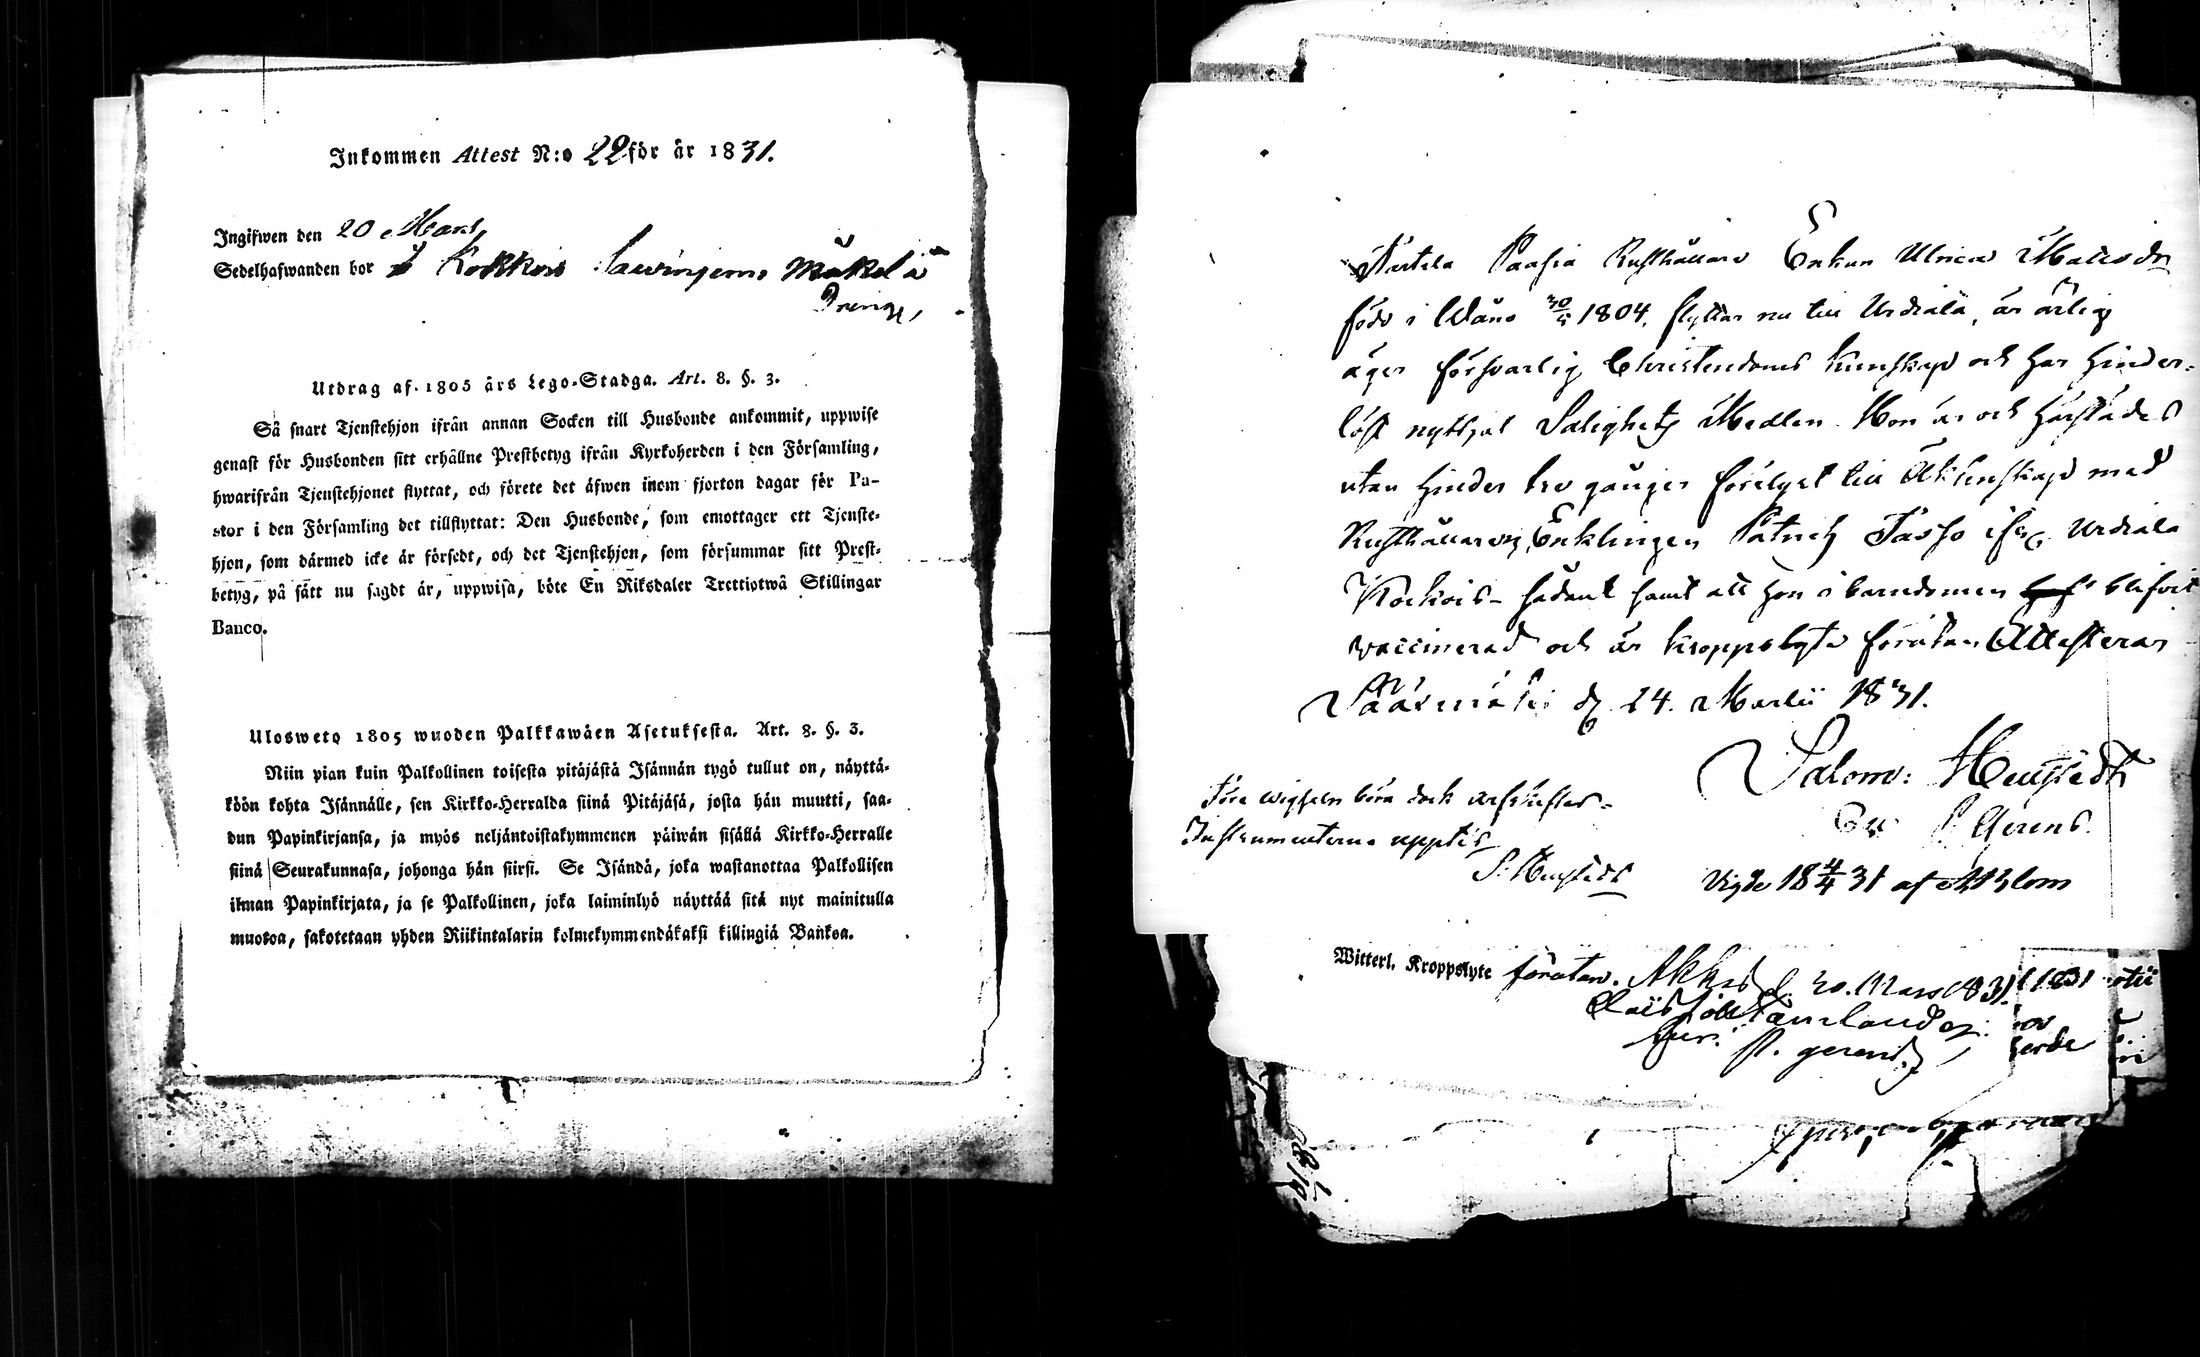 Inkommen Attest N:o 22 för år 1831.
Ingifwen den 20 Mars
Sedelhafwanden bor i Kokkois Mäkelä
Dreng,
Utdrag af 1805 års Lego-Stadga. Art. 8. §. 3.
Så snart Tjenstehjon ifrån annan Socken till Husbonde ankommit, uppwise
genast för Husbonden sitt erhållne Prestbetyg ifrån Kyrkoherden i den Församling,
hwarifrån Tjenstehjonet flyttat, och förete det äfwen inom fjorton dagar för Pa-
stor i den Församling det tillflyttat: Den Husbonde, som emottager ett Tjenste-
hjon, som därmed icke är försedt, och det Tjenstehjon, som försummar sitt Prest-
betyg, på sätt nu sagdt är, uppwisa, böte En Riksdaler Trettiotwå Skillingar
Banco.
Ulosweto 1805 wuoden Palkkawäen Asetuksesta. Art. 8. §. 3.
Niin pian kuin Palkollinen toisesta pitäjästä Isännän tygö tullut on, näyttä-
köön kohta Isännälle, sen Kirkko-Herralda siinä Pitäjäsä, josta hän muutti, saa-
dun Papinkirjansa, ja myös neljäntoistakymmenen päiwän sisällä Kirkko-Herralle
siinä Seurakunnasa, johonga hän siirsi. Se Isändä, joka wastanottaa Palkollisen
ilman Papinkirjata, ja se Palkollinen, joka laiminlyö näyttää sitä nyt mainitulla
muotoa, sakotetaan yhden Riikintalarin kolmekymmendäkaksi killingiä Bankoa.
Paasia Rusthållare Enkan Ulrica Matsdr
född i Wånå 30/5 1804, flyttar nu till Urdiala, är ärlig
äger försvarlig Christendoms kunskap och har hinder-
löst nyttjat Salighets Medlen. Hon är och härstädes
utan hinder tre gånger förelyst till Äktenskap med
Rusthållaren, Enklingen Patrich Jasso ifrån Urdiala
Kockois - sådant samt att hon i barndomen blifvit
vaccinerad och är kroppslyte förutan Attesteras
Sääxmäki d. 24. Martii 1831.
Salom: Henstedt
P. Gerens.
Före wigseln böra dock arfskiftes-
Instrumenterne uppte's
S. Henstedt
Vigde 18 4/4 31 af
Witterl. Kroppslyte förutan. Akkas d. 20. Mars 1831. 1831
p. gerens